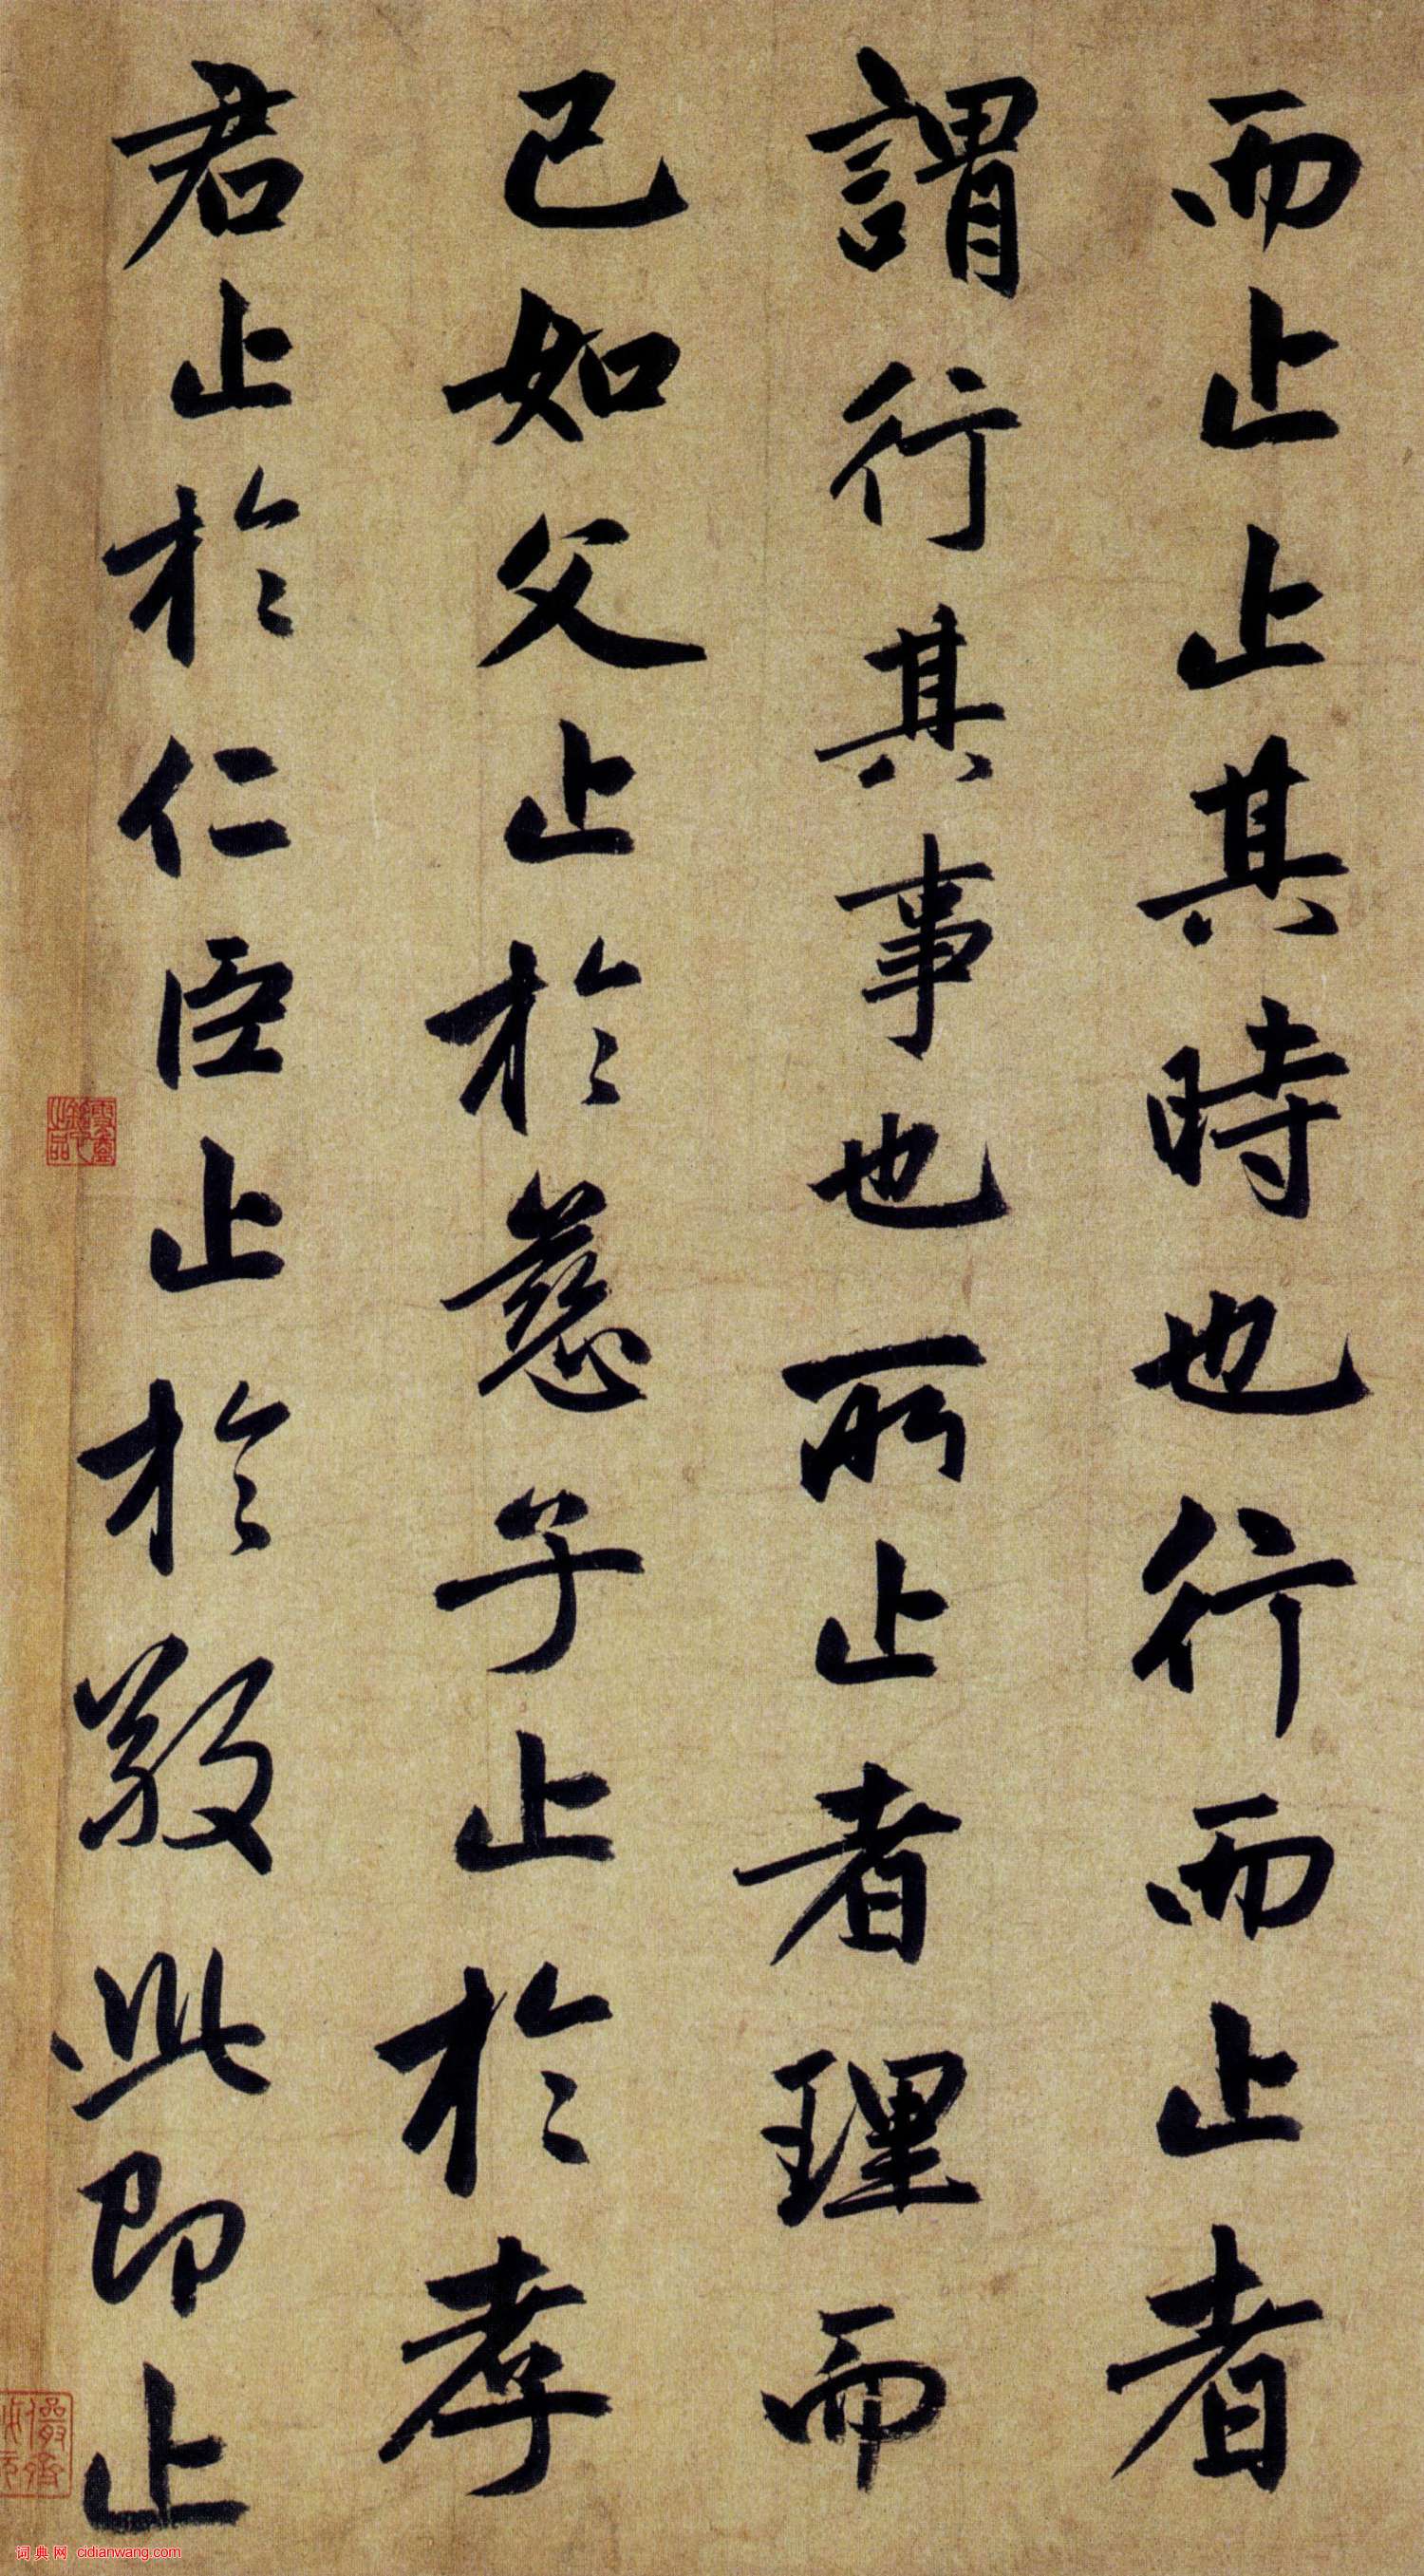 而止止其時也行而止者
謂行其事也所止者理而
已如父止於慈子止於孝
君止於仁臣止於敬此即止
词典网 cidianwang.com